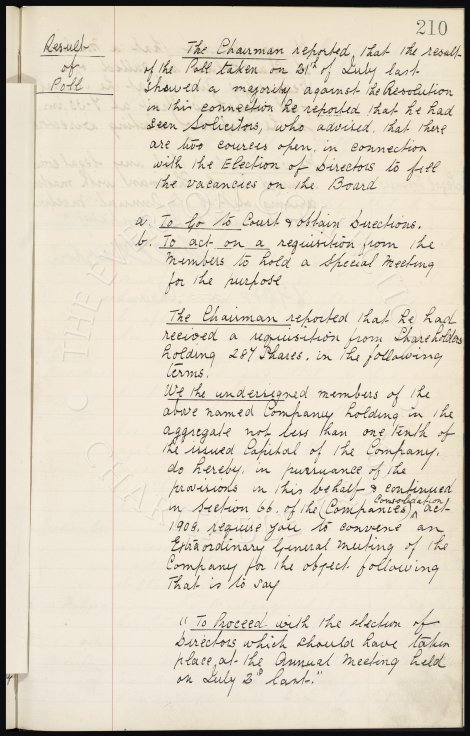 210
Result
of
Poll
The Chairman reported, that the result
of the Poll taken on 21st of July last
showed a majority against the Resolution
in this connection he reported that he had
seen Solicitors, who advised, that there
are two courses open, in connection
with the Election of Directors to fill
the vacancies on the Board
a. To Go to Court & obtain Directions.
b. To act on a requisition from the
Members to hold a Special Meeting
for the purpose
The Chairman reported that he had
received a requisition from Shareholders
holding 287 Shares, in the following
terms.
We the undersigned members of the
above named Company holding in the
aggregate not less than one tenth of
the issued Capital of the Company,
do hereby, in pursuance of the
provisions in this behalf & continued
in Section 66. of the (Companies) Consolidation act
1908, require you to convene an
Extraordinary General Meeting of the
Company for the object following
that is to say
"To Proceed with the election of
Directors which should have taken
place, at the Annual Meeting held
on July 2nd last."